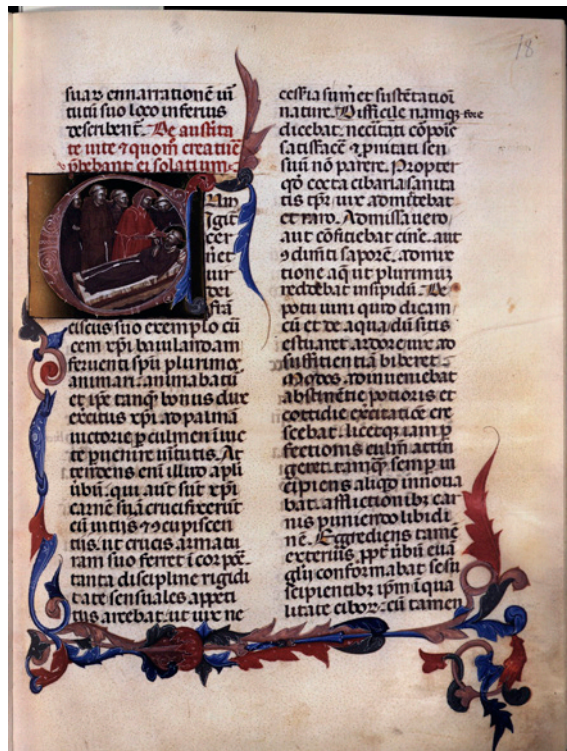 18
suaȝ ennarrationē ui
tutū suo loco inferius
describent᷑. De austita
te uite ⁊ quom̄ creatiē
p̄hebant ei solatium.
Cum
Igit᷑
cer
n̄et
uir
dei
frā
ciscus suo exemplo cū
cem xp̄i baiulandam
feruenti sp̄u plurimos
animari. animabat᷑
et ip̄e tanq̄ bonus dux
exc̄itus xp̄i ad palmā
uictorie p̱ culmen īuic
te p̱uenire uirtutis. At
tendens eni illud apl̄i
ūbū. qui aūt sūt xp̄i
carnē suā crucifixerūt
cū uitiis ⁊ ꝯcupiscen
tiis. ut crucis armatu
ram suo ferret ī corp̱e.
tanta discipline rigidi
tate sensuales appeti
tus arcebat. ut uix ne
cessaria sum̄et sustētatiōi
nature. Difficile namq̄ fore
dicebat. necc̄itati corp̱ois
satisfac̄e ⁊ pnitati sen
suū nō parere. Propter
qd̄ cocta cibaria sanita
tis tp̱r̄. uix admittebat
et raro. Admissa uero.
aut cōficiebat cin̄e. aut
ꝯdim̄ti saporē. admix
tione aq̄ ut plurimuȝ
reddebat insipidū. De
potu uini quid dicam
cū et de aqua dū sitis
estuaret ardore uix ad
sufficientiā biberet.
Modos adinueniebat
abstinētie potioris et
cottidie exc̄itatiōe cre
scebat. licetqȝ iam p̱
fectionis culm̄ attin
geret. tamq̄ semp̱ in
cipiens aliqd innoua
bat. afflictionibȝ car
nis puniendo libidi
nē. Egrediens tamē
exterius. ppt̄ ūbū euā
glij conformabat se su
scipientibȝ ip̄m ī qua
litate ciboȝ. cū tamen